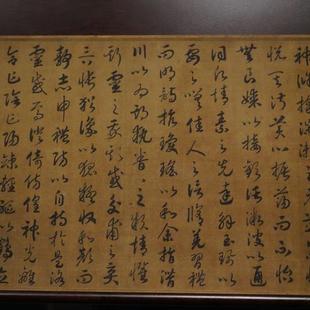 悦其淑美心振蕩而不怡
無良媒以接歡託微波以通
辭願情素之先達解玉珮以
要之嗟佳人之信脩羌習禮
而明詩抗瓊珶以和余指潛
川以為期執眷眷之款情懼
斯靈之我欺感交甫之棄
言悵猶豫以狐疑收和顏而
靜志申禮防以自持於是洛
靈感焉徙倚傍偟神光離
合乍陰乍陽竦輕軀以鶴立